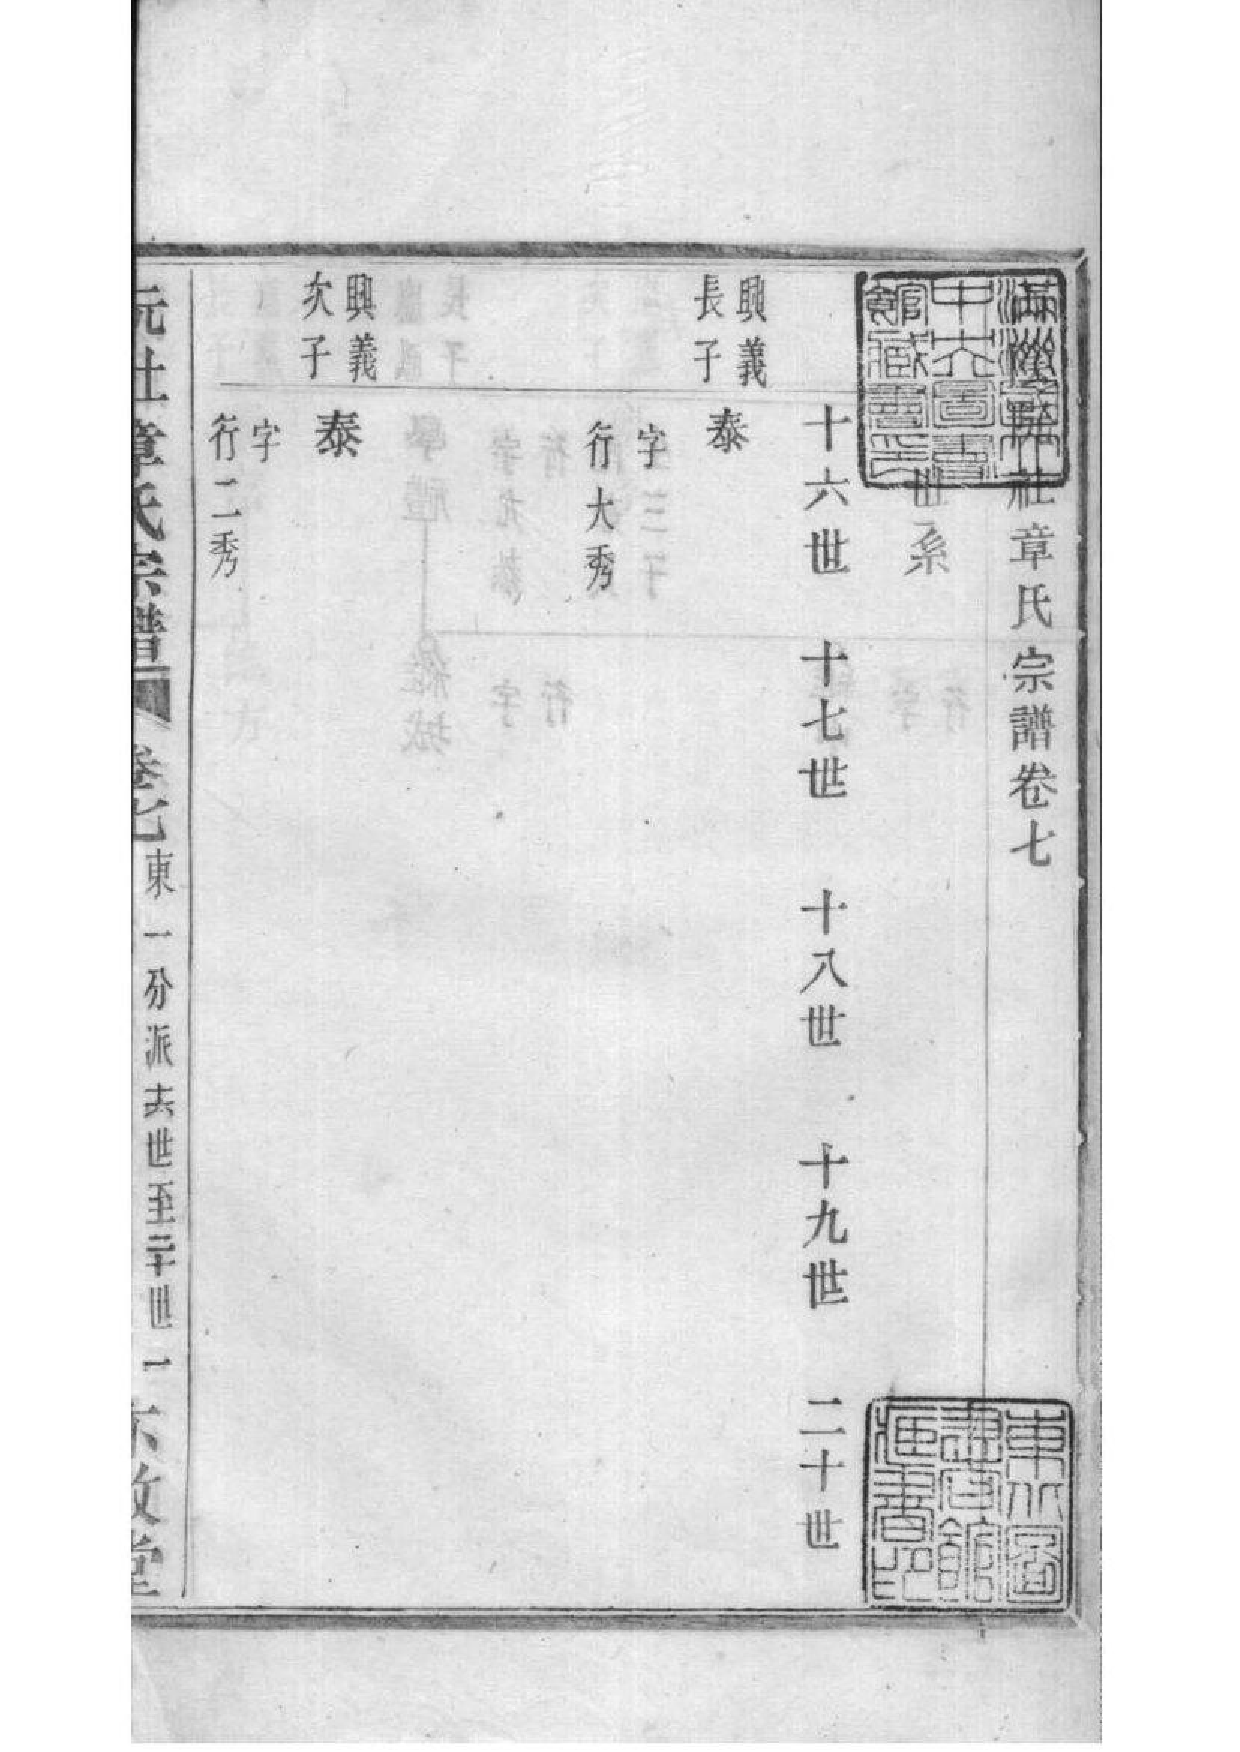 社章氏宗譜卷七
世系
十六世 十七世 十八世 十九世 二十世
興義
長子
泰
字
行大秀
興義
次子
泰
字
行二秀
阮社章氏宗譜 卷七 東一分派 十六世至二十世 一 六政堂
滿洲
中央圖書
館藏書印
東北圖
書館
藏書印